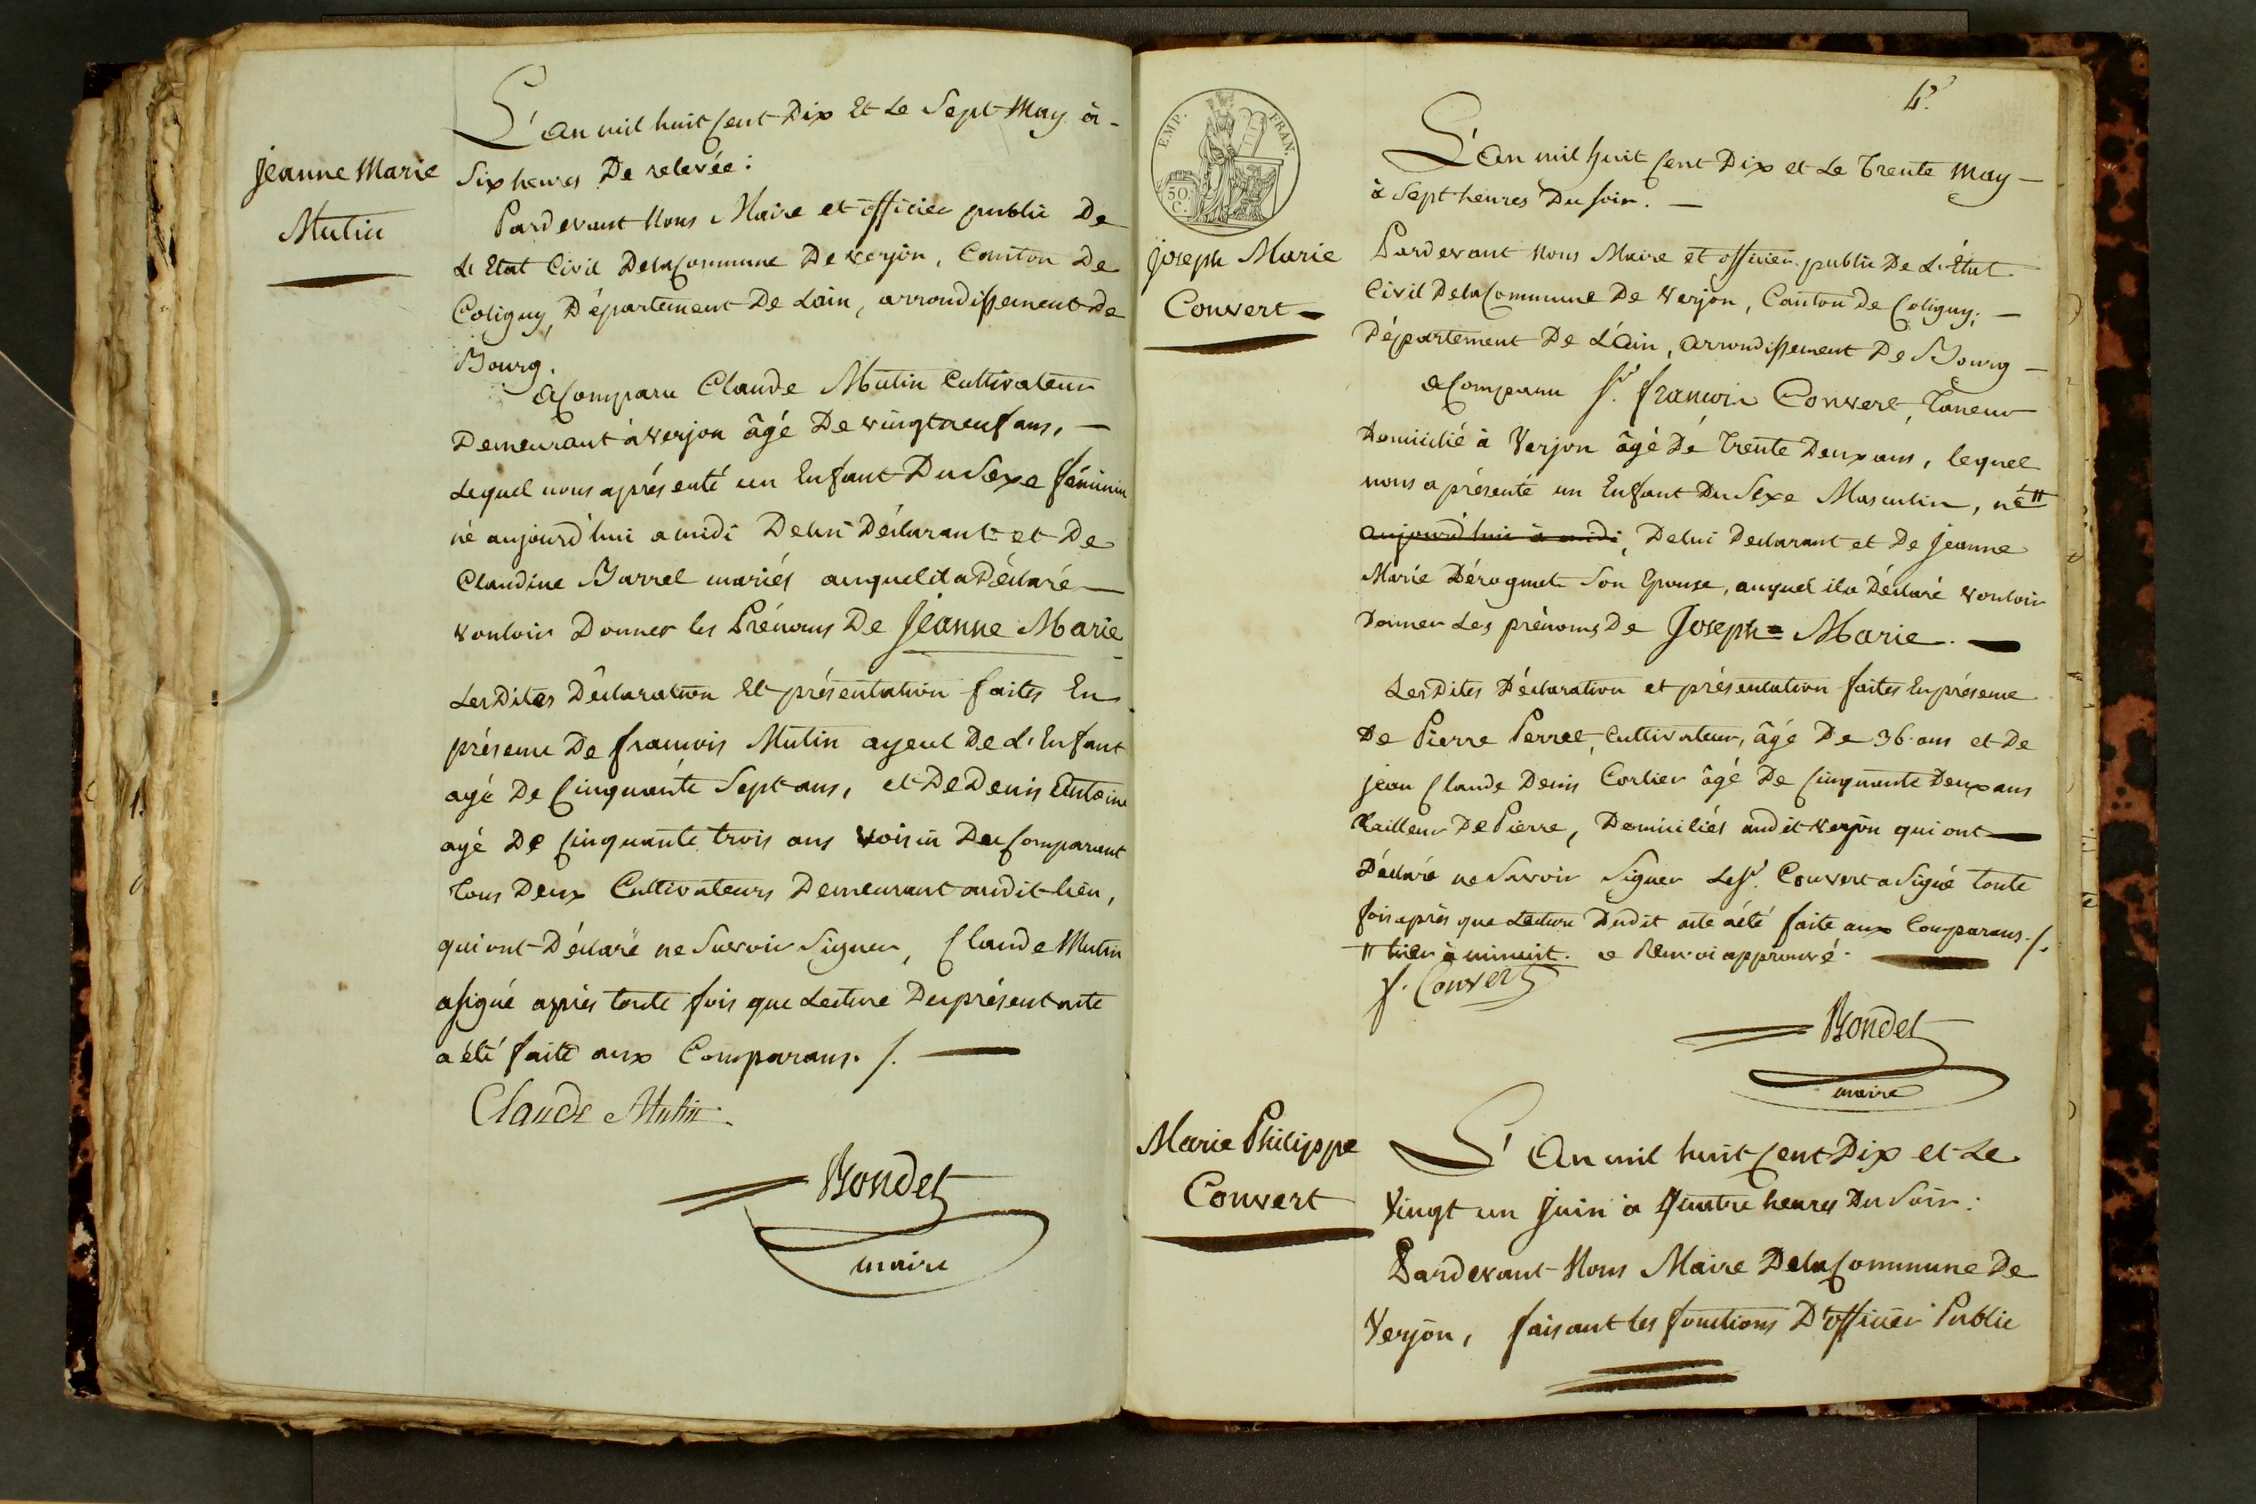 Jeanne Marie
Mutin
L'an mil huit Cent Dix Et Le Sept May à
Six heures De relevée :
Pardevant Nous Maire et officier public De
L'Etat Civil De la Commune De verjon, Canton De
Coligny, Département De Lain, arrondissement De
Bourg.
a Comparu Claude Mutin Cultivateur
Demeurant à verjon âgé De vingt neuf ans,
Lequel nous a présenté un Enfant Du Sexe féminin
né aujourd'hui a midi De lui Déclarant et De
Claudine Barrel mariés auquel il a Déclaré
vouloir Donner les Prénoms De Jeanne Marie
Les Dites Déclaration Et présentation faites En
présence De francois Mutin ayeul De L'Enfant
agé De Cinquante Sept ans, et De Denis Antoine
agé De Cinquante trois ans voisin Du Comparant
Tous Deux Cultivateurs Demeurant audit lieu,
qui ont Déclaré ne Savoir Signer, Claude Mutin
a signé après toute fois que Lecture Du présent acte
a été faite aux Comparans. /.
Claude Mutin.
Bondet
maire
4.
EMP. FRAN.
50 C.
Joseph Marie
Convert
L'an mil huit Cent Dix et Le Trente May
à Sept heures Du soir.
Pardevant Nous Maire et officier public De L'État
Civil De la Commune De Verjon, Canton de Coligny,
Département De L'Ain, arrondissement De Bourg
a Comparu Sr. francois Convert, Taneur
Domicilié à Verjon âgé De Trente Deux ans, lequel
nous a présenté un Enfant Du Sexe Masculin, né "
aujourd'hui à midi, De lui Declarant et De Jeanne
Marie Dérognat Son Epouse, auquel il a Déclaré vouloir
Donner Les prénoms De Joseph = Marie.
Les Dites Déclaration et présentation faites En présence
De Pierre Perret, Cultivateur, âgé De 36 ans et De
Jean Claude Denis Cortier âgé De Cinquante Deux ans
Tailleur De Pierre, Domiciliés audit verjon qui ont
Déclaré ne Savoir Signer Le Sr. Convert a Signé toute
fois après que Lecture Dudit acte a été faite aux Comparans. /.
" hier à minuit. ce Renvoi approuvé.
f. Convert
Bondet
maire
Marie Philippe
Convert
L'An mil huit Cent Dix et Le
Vingt un Juin à Quatre heures Du Soir :
Pardevant Nous Maire De la Commune De
Verjon, faisant les fonctions D'officier Public